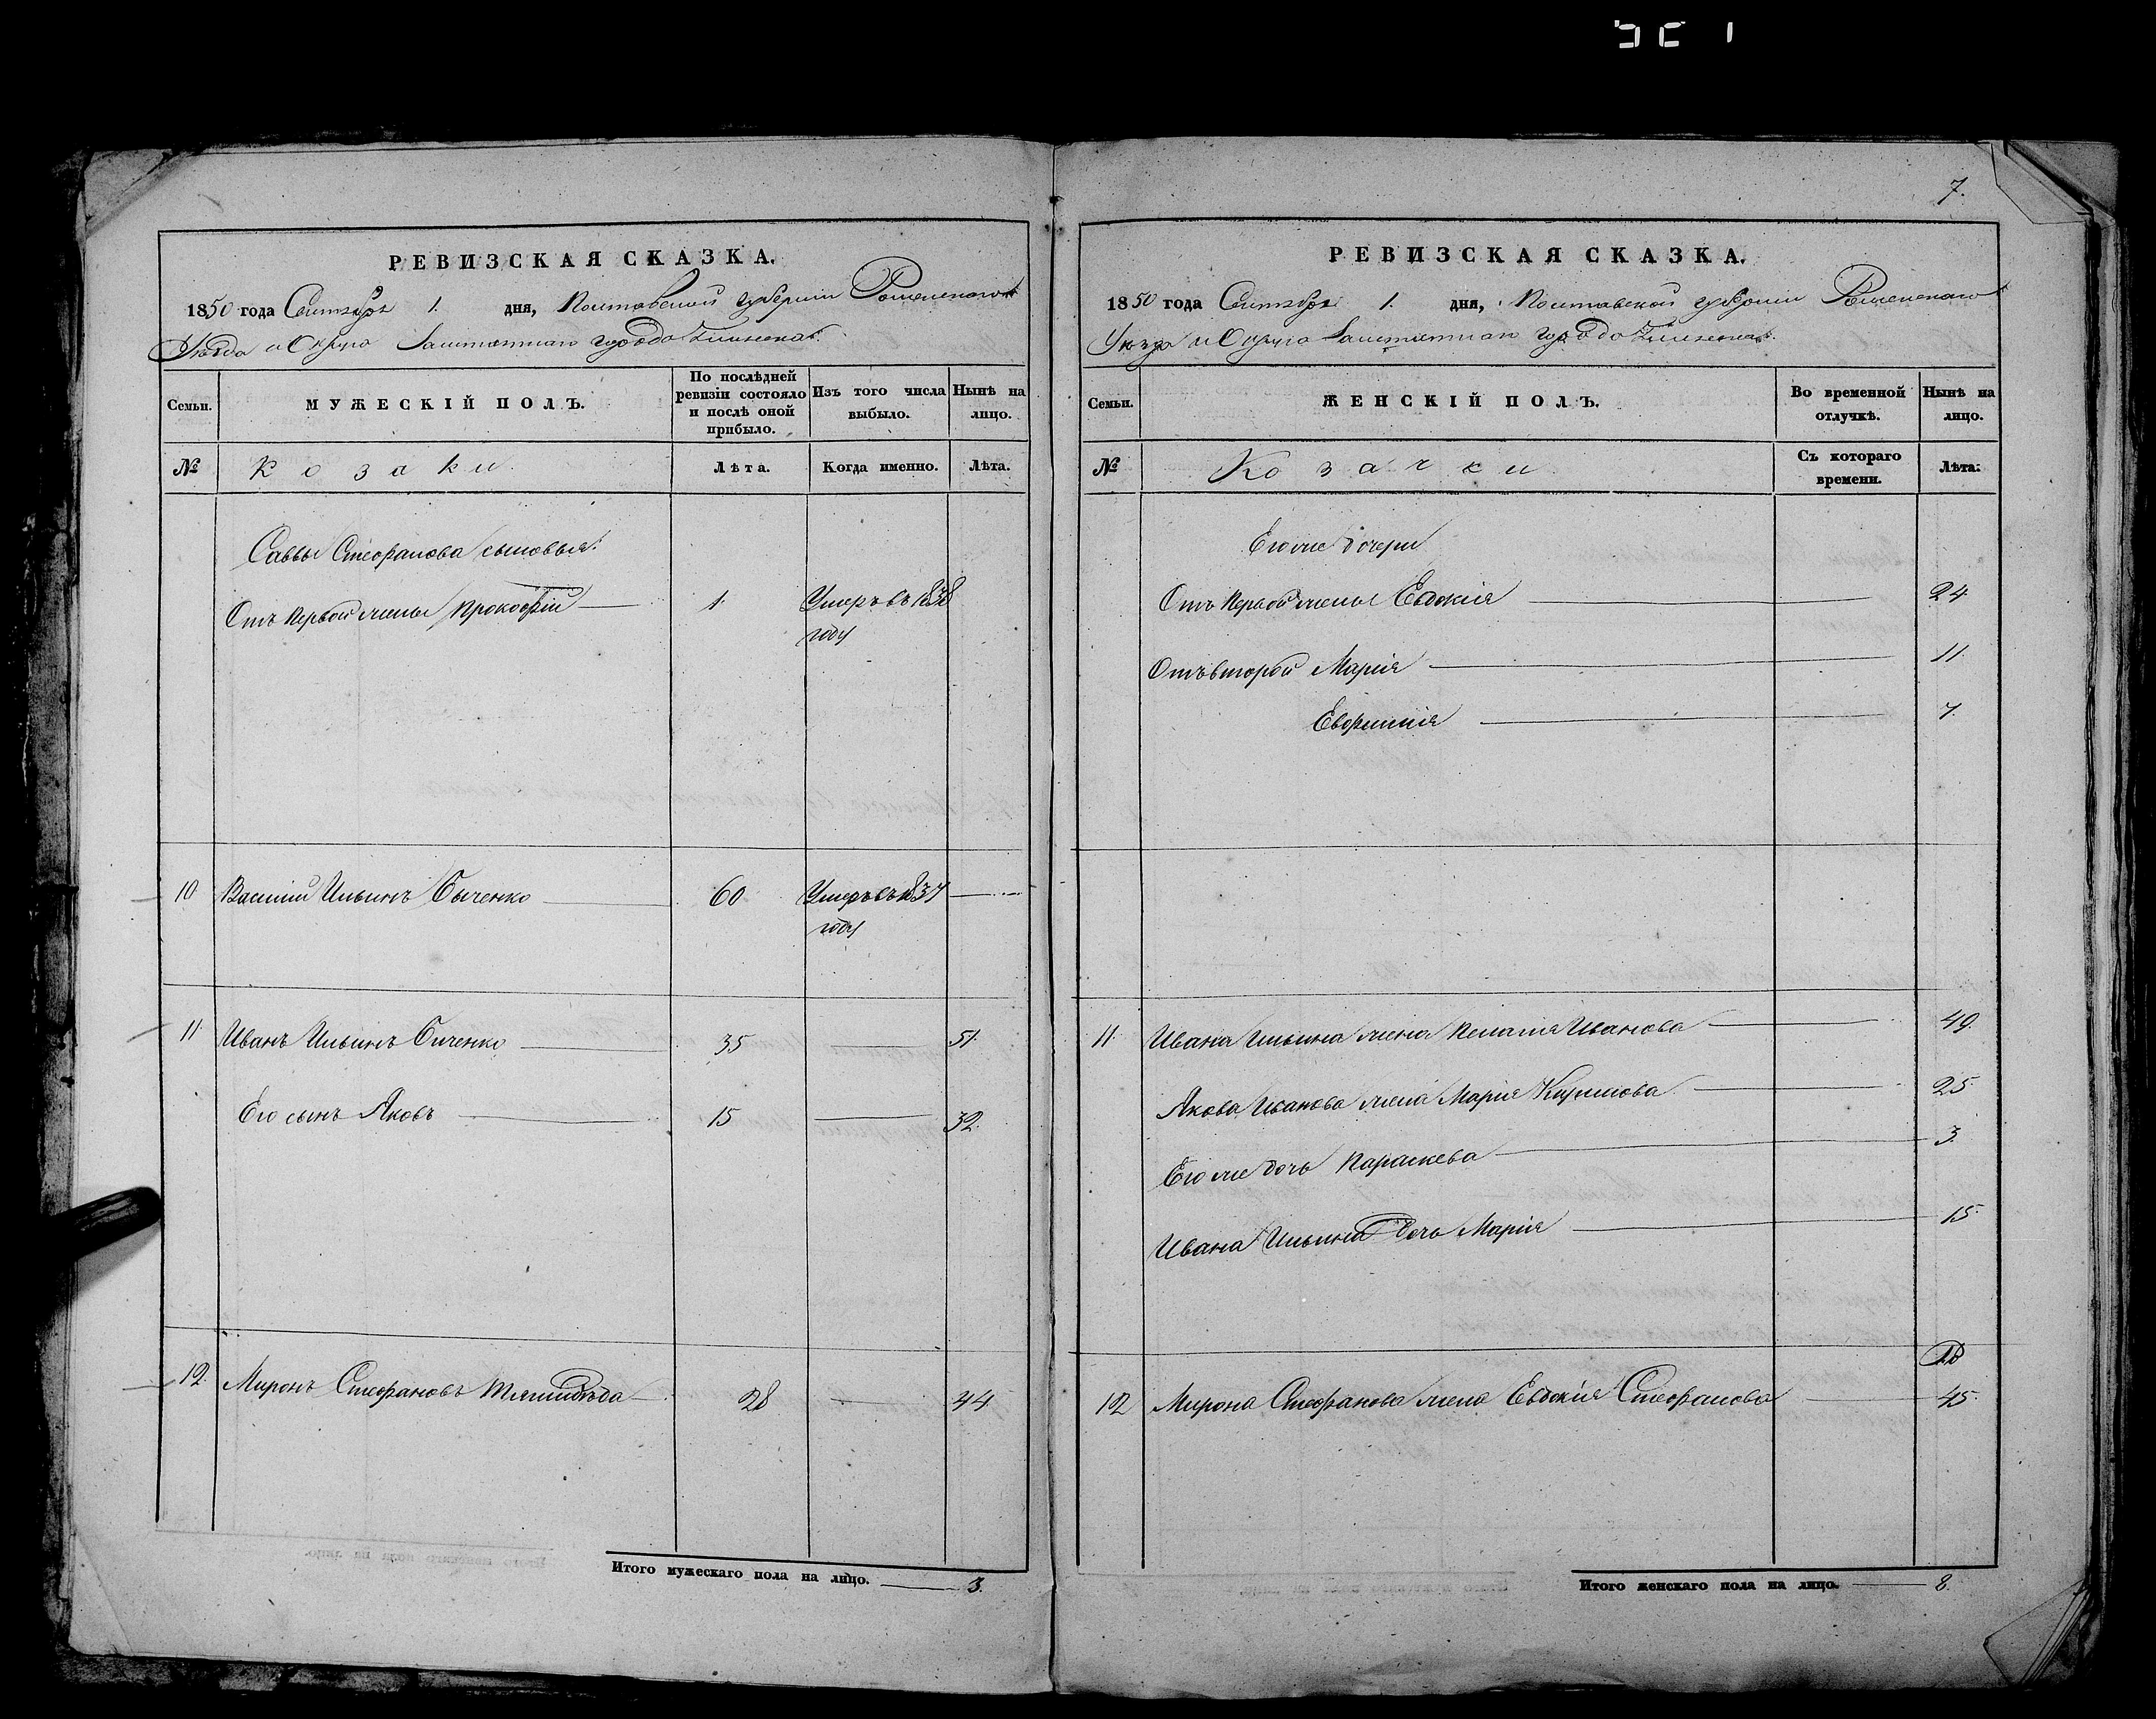 7.
РЕВИЗСКАЯ СКАЗКА.
1850 года Сентября 1. дня, Полтавской губернiи Роменскаго
Уѣзда и Округа Заштатнаго города Глинска.
Семьи.
МУЖЕСКIЙ ПОЛЪ.
По послѣдней ревизiи состояло и послѣ оной прибыло.
Изъ того числа выбыло.
Нынѣ на лицо.
№
Козаки.
Лѣта.
Когда именно.
Лѣта.
Саввы Стефанова сыновья:
Отъ первой жены Прокофiй 1. Умеръ въ 1838
году
10 Василiй Ильинъ Быченко 60 Умеръ въ 1837
году
11. Иванъ Ильинъ Биченко 35 51.
Его сынъ Яковъ 15 32.
12. Миронъ Стефановъ 28 44
Итого мужескаго пола на лицо. 3.
РЕВИЗСКАЯ СКАЗКА.
1850 года Сентября 1. дня, Полтавской губернiи Роменскаго
Уѣзда и Округа Заштатнаго города Глинска.
Семьи.
ЖЕНСКIЙ ПОЛЪ.
Во временной отлучкѣ.
Нынѣ на лицо.
№
Козачки
Съ котораго времени.
Лѣта:
Его же дочери
Отъ первой жены Евдокiя 24
Отъ второй Марiя 11.
Евфимiя 7.
11. Ивана Ильина жена Пелагiя Иванова 49.
Якова Иванова жена Марiя 25
Его же дочь Параскева 3.
Ивана Ильина дочь Марiя 15.
12 Мирона Стефанова жена Евдокiя Стефанова 45.
Итого женскаго пола на лицо. 8.